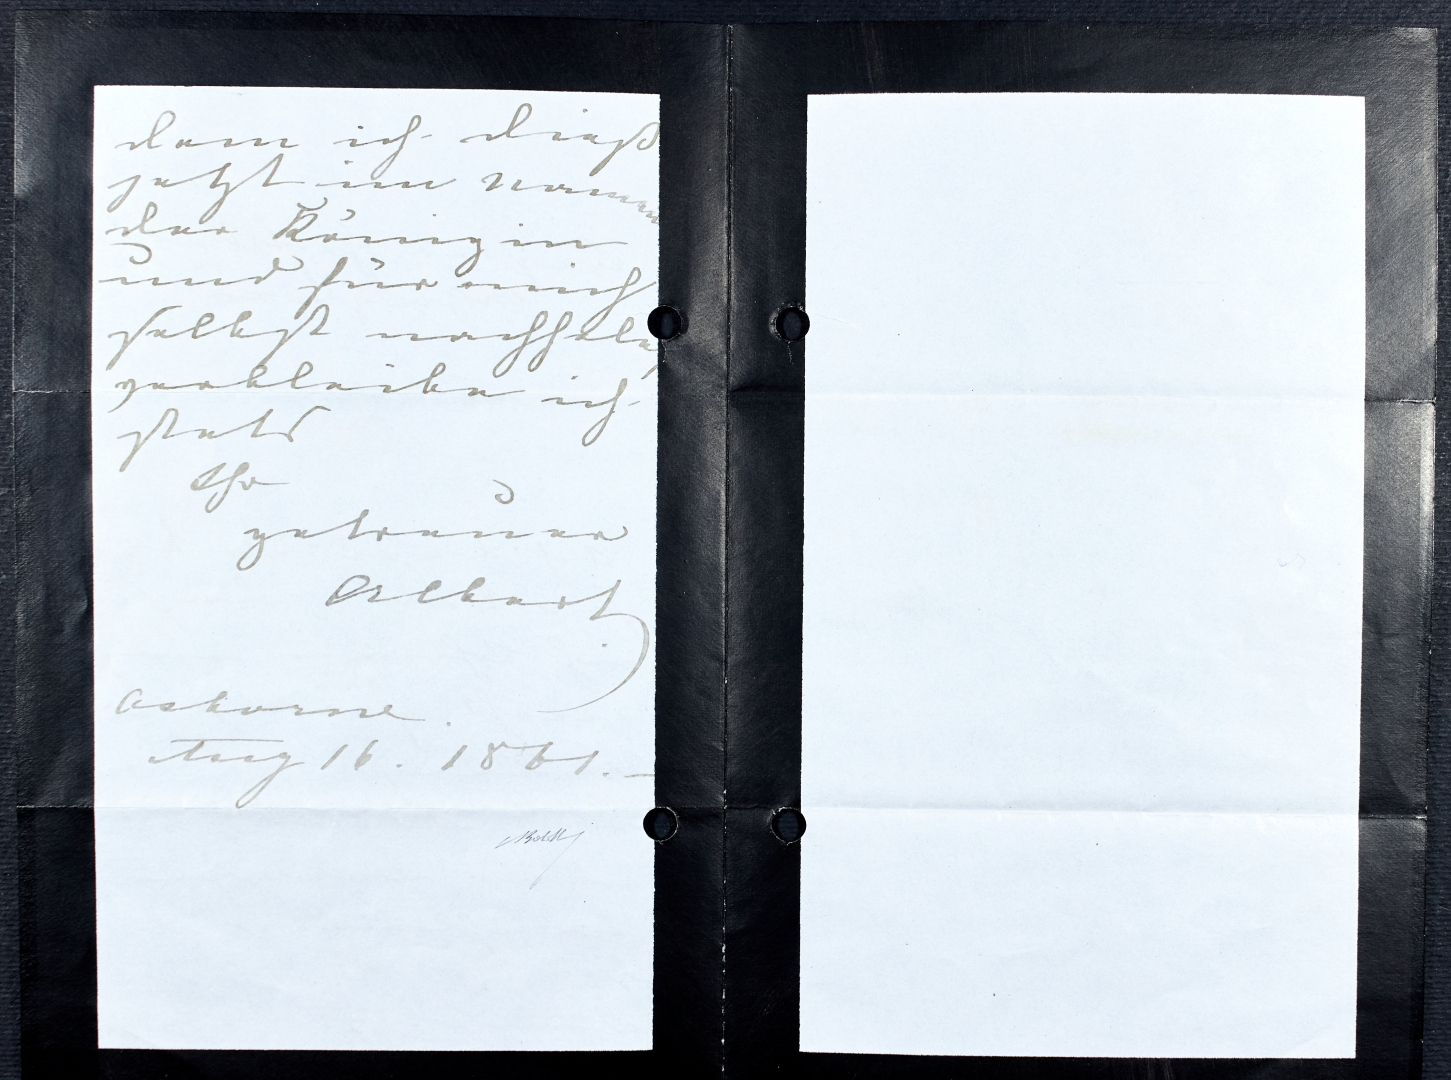 dem ich dieß
jetzt im Namen
der Königin
und für mich
selbst nachhole,
verbleibe ich
stets
Ihr
getreuer
Albert
Osborne.
Aug 16. 1861.